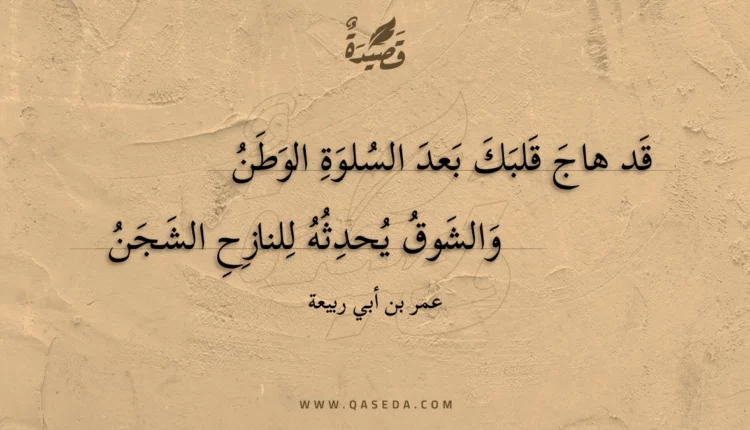 قَصِيدَةٌ
قَد هاجَ قَلبَكَ بَعدَ السُلوَةِ الوَطَنُ
وَالشَوقُ يُحدِثُهُ لِلنازِحِ الشَجَنُ
عمر بن أبي ربيعة
WWW.QASEDA.COM